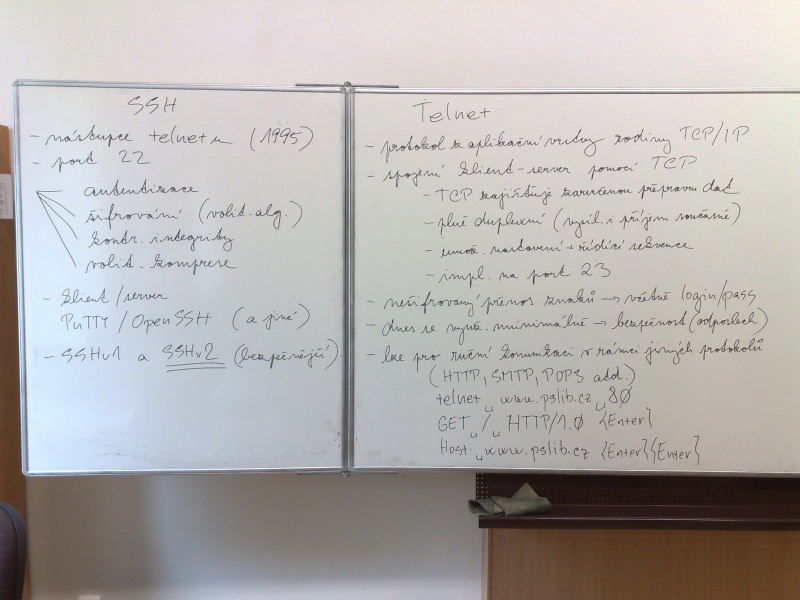 SSH
- nástupce telnetu (1995)
- port 22
autentizace
šifrování (volit. alg.)
kontr. integrity
volit. komprese
- klient/server
PuTTY/OpenSSH (a jiné)
- SSHv1 a SSHv2 (bezpečnější)
Telnet
- protokol z aplikační vrstvy rodiny TCP/IP
- spojení klient-server pomocí TCP
- TCP zajišťuje zaručenou přepravu dat
- plně duplexní (vysíl. i příjem současně)
- umož. nastavení + řídící sekvence
- impl. na port 23
- nešifrovaný přenos znaků → včetně login/pass
- dnes se využ. minimálně → bezpečnost (odposlech)
- lze pro ruční komunikaci v rámci jiných protokolů
(HTTP, SMTP, POP3 atd.)
telnet␣www.pslib.cz␣80
GET␣/␣HTTP/1.0 {Enter}
Host:␣www.pslib.cz {Enter}{Enter}